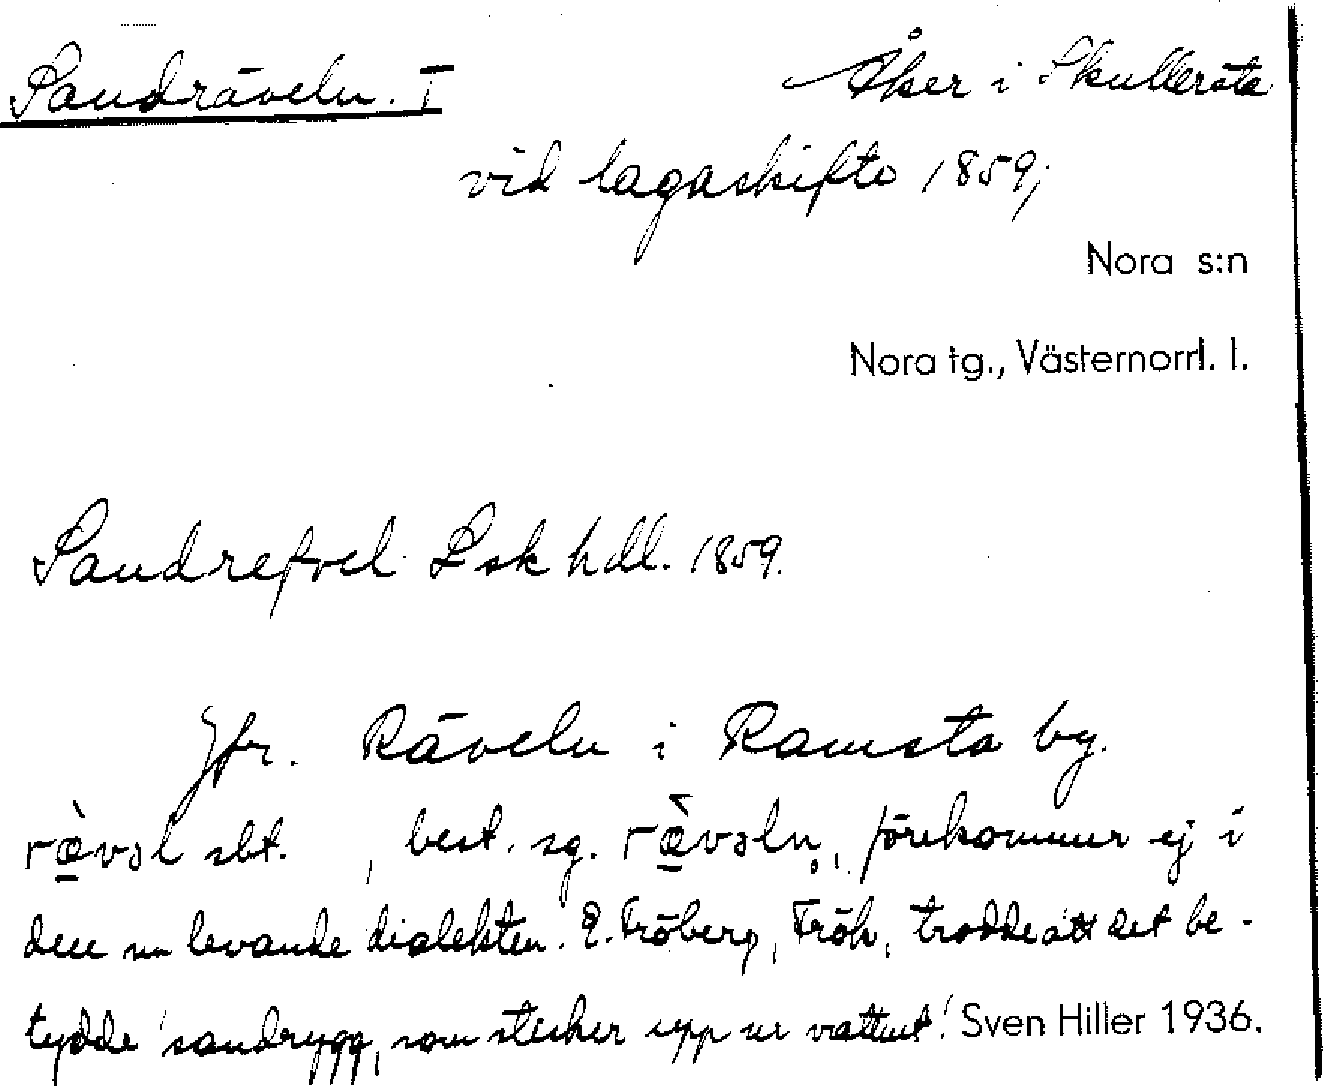 Sandräveln. I Åker i Skullersta
vid lagaskifte 1859;
Nora s:n
Nora tg., Västernorrl. l.
Sandrefvel Lsk hdl. 1859.
Jfr. Räveln i Ramsta by.
sbt. , best. sg. , förekommer ej i
den nu levande dialekten. E. Fröberg, Frök, trodde att det be-
tydde 'sandrygg, som sticker upp ur vattnet.' Sven Hiller 1936.